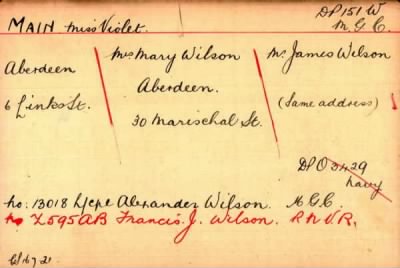 MAIN Miss Violet.
DP 151 W
M.G.C.
Aberdeen
6 Links St.
Mrs Mary Wilson
Aberdeen.
30 Marischal St.
Mr James Wilson
(Same address)
DPO 3429
Navy
No: 13018 L/Cpl Alexander Wilson. M.G.C.
No Z595AB Francis. J. Wilson. R.N.V.R.